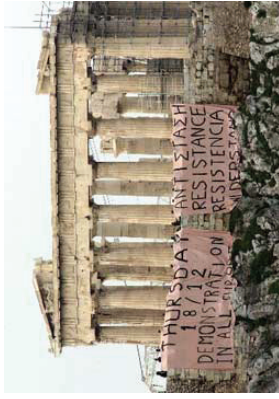 THURSDAY
18/12
DEMONSTRATION
IN ALL
ΑΝΤΙΣΤΑΣΗ
RESISTANCE
RESISTENCIA
WIDERSTAND